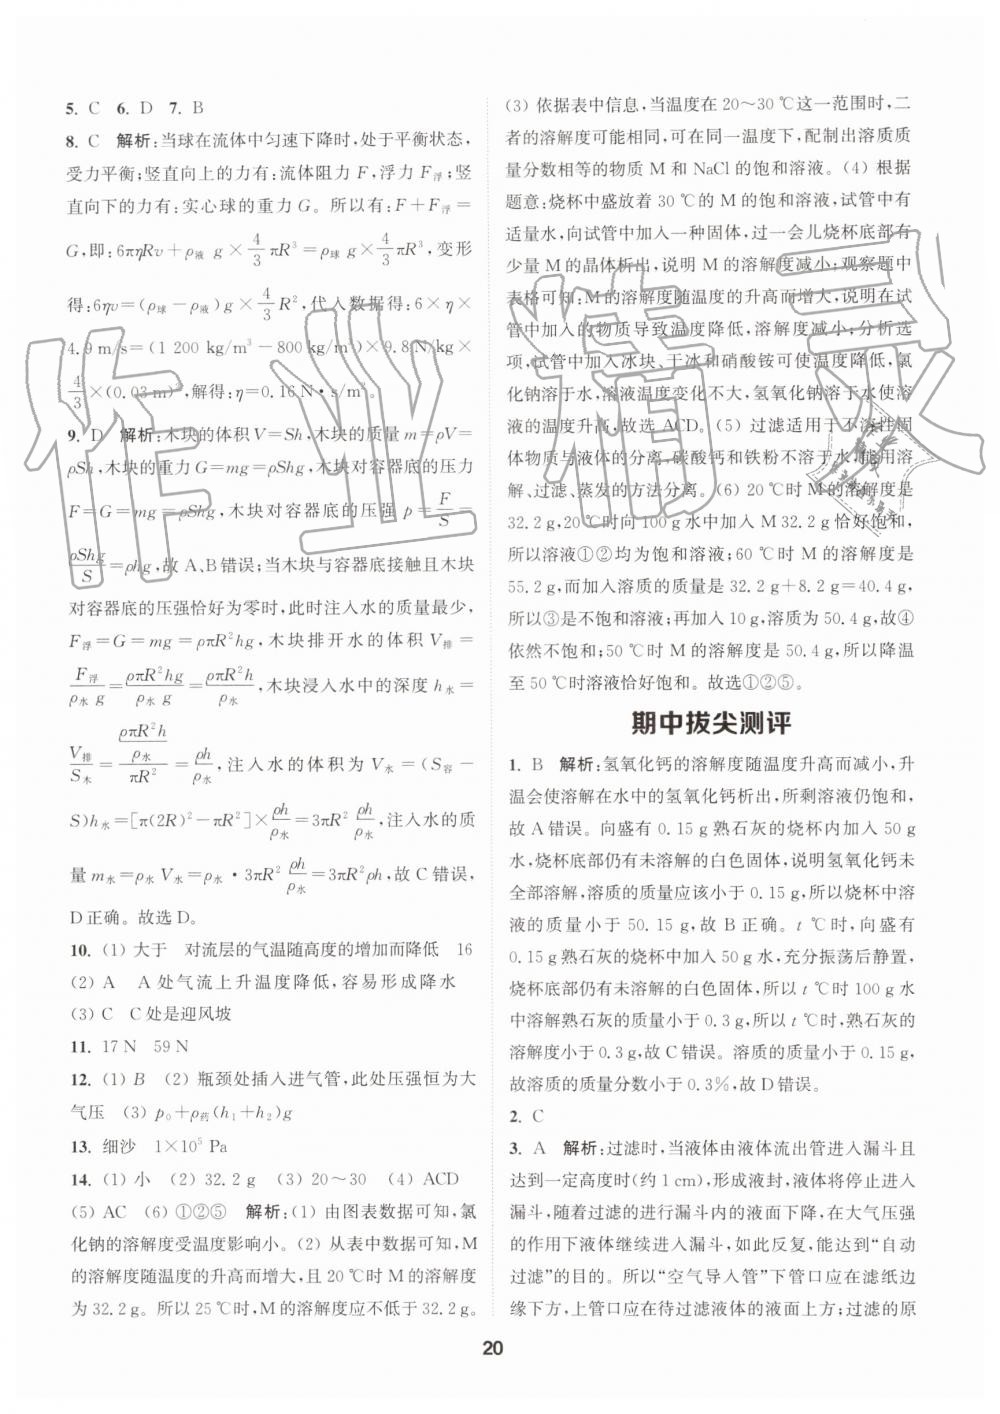 5. C 6. D 7. B
8. C 解析:当球在流体中匀速下降时,处于平衡状态,
受力平衡;竖直向上的力有:流体阻力 F,浮力 F浮;竖
直向下的力有:实心球的重力 G。所以有:F+F浮=
G,即:6πηRv+ρ液 g×4/3πR³=ρ球 g×4/3πR³,变形
得:6ηv=(ρ球-ρ液)g×4/3R²,代入数据得:6×η×
4.9 m/s=(1 200 kg/m³-800 kg/m³)×9.8 N/kg×
4/3×(0.03 m)²,解得:η=0.16 N·s/m²。
9. D 解析:木块的体积 V=Sh,木块的质量 m=ρV=
ρSh,木块的重力 G=mg=ρShg,木块对容器底的压力
F=G=mg=ρShg,木块对容器底的压强 p=F/S=
ρShg/S=ρhg,故 A、B错误;当木块与容器底接触且木块
对容器底的压强恰好为零时,此时注入水的质量最少,
F浮=G=mg=ρπR²hg,木块排开水的体积 V排=
F浮/ρ水 g=ρπR²hg/ρ水 g=ρπR²h/ρ水,木块浸入水中的深度 h水=
V排/S木=(ρπR²h/ρ水)/πR²=ρh/ρ水,注入水的体积为 V水=(S容-
S)h水=[π(2R)²-πR²]×ρh/ρ水=3πR²ρh/ρ水,注入水的质
量 m水=ρ水 V水=ρ水·3πR²ρh/ρ水=3πR²ρh,故 C 错误,
D 正确。故选 D。
10. (1) 大于 对流层的气温随高度的增加而降低 16
(2) A A 处气流上升温度降低,容易形成降水
(3) C C 处是迎风坡
11. 17 N 59 N
12. (1) B (2) 瓶颈处插入进气管,此处压强恒为大
气压 (3) p₀+ρ药(h₁+h₂)g
13. 细沙 1×10⁵ Pa
14. (1) 小 (2) 32.2 g (3) 20～30 (4) ACD
(5) AC (6) ①②⑤ 解析:(1) 由图表数据可知,氯
化钠的溶解度受温度影响小。(2) 从表中数据可知,M
的溶解度随温度的升高而增大,且 20 ℃时 M 的溶解度
为 32.2 g。所以 25 ℃时,M 的溶解度应不低于 32.2 g。
(3) 依据表中信息,当温度在 20～30 ℃这一范围时,二
者的溶解度可能相同,可在同一温度下,配制出溶质质
量分数相等的物质 M 和 NaCl 的饱和溶液。(4) 根据
题意:烧杯中盛放着 30 ℃的 M 的饱和溶液,试管中有
适量水,向试管中加入一种固体,过一会儿烧杯底部有
少量 M 的晶体析出,说明 M 的溶解度减小;观察题中
表格可知:M 的溶解度随温度的升高而增大,说明在试
管中加入的物质导致温度降低,溶解度减小;分析选
项,试管中加入冰块、干冰和硝酸铵可使温度降低,氯
化钠溶于水,液体温度变化不大,氢氧化钠溶于水使溶
液的温度升高,故选 ACD。(5) 过滤适用于不溶性固
体物质与液体的分离,碳酸钙和铁粉不溶于水,能用溶
解、过滤、蒸发的方法分离。(6) 20 ℃时 M 的溶解度是
32.2 g,20 ℃时向 100 g 水中加入 M 32.2 g 恰好饱和,
所以溶液①②均为饱和溶液;60 ℃时 M 的溶解度是
55.2 g,而加入溶质的质量是 32.2 g+8.2 g=40.4 g,
所以③是不饱和溶液;再加入 10 g,溶质为 50.4 g,故④
依然不饱和;50 ℃时 M 的溶解度是 50.4 g,所以降温
至 50 ℃时溶液恰好饱和。故选①②⑤。
期中拔尖测评
1. B 解析:氢氧化钙的溶解度随温度升高而减小,升
温会使溶解在水中的氢氧化钙析出,所剩溶液仍饱和,
故 A 错误。向盛有 0.15 g 熟石灰的烧杯内加入 50 g
水,烧杯底部仍有未溶解的白色固体,说明氢氧化钙未
全部溶解,溶质的质量应该小于 0.15 g,所以烧杯中溶
液的质量小于 50.15 g,故 B 正确。t ℃时,向盛有
0.15 g 熟石灰的烧杯中加入 50 g 水,充分振荡后静置,
烧杯底部仍有未溶解的白色固体,所以 t ℃时 100 g 水
中溶解熟石灰的质量小于 0.3 g,所以 t ℃时,熟石灰的
溶解度小于 0.3 g,故 C 错误。溶质的质量小于 0.15 g,
故溶质的质量分数小于 0.3%,故 D 错误。
2. C
3. A 解析:过滤时,当液体由液体流出管进入漏斗且
达到一定高度时(约 1 cm),形成液封,液体将停止进入
漏斗,随着过滤的进行漏斗内的液面下降,在大气压强
的作用下液体继续进入漏斗,如此反复,能达到“自动
过滤”的目的。所以“空气导入管”下管口应在滤纸边
缘下方,上管口应在待过滤液体的液面上方;过滤的原
20
作业精灵